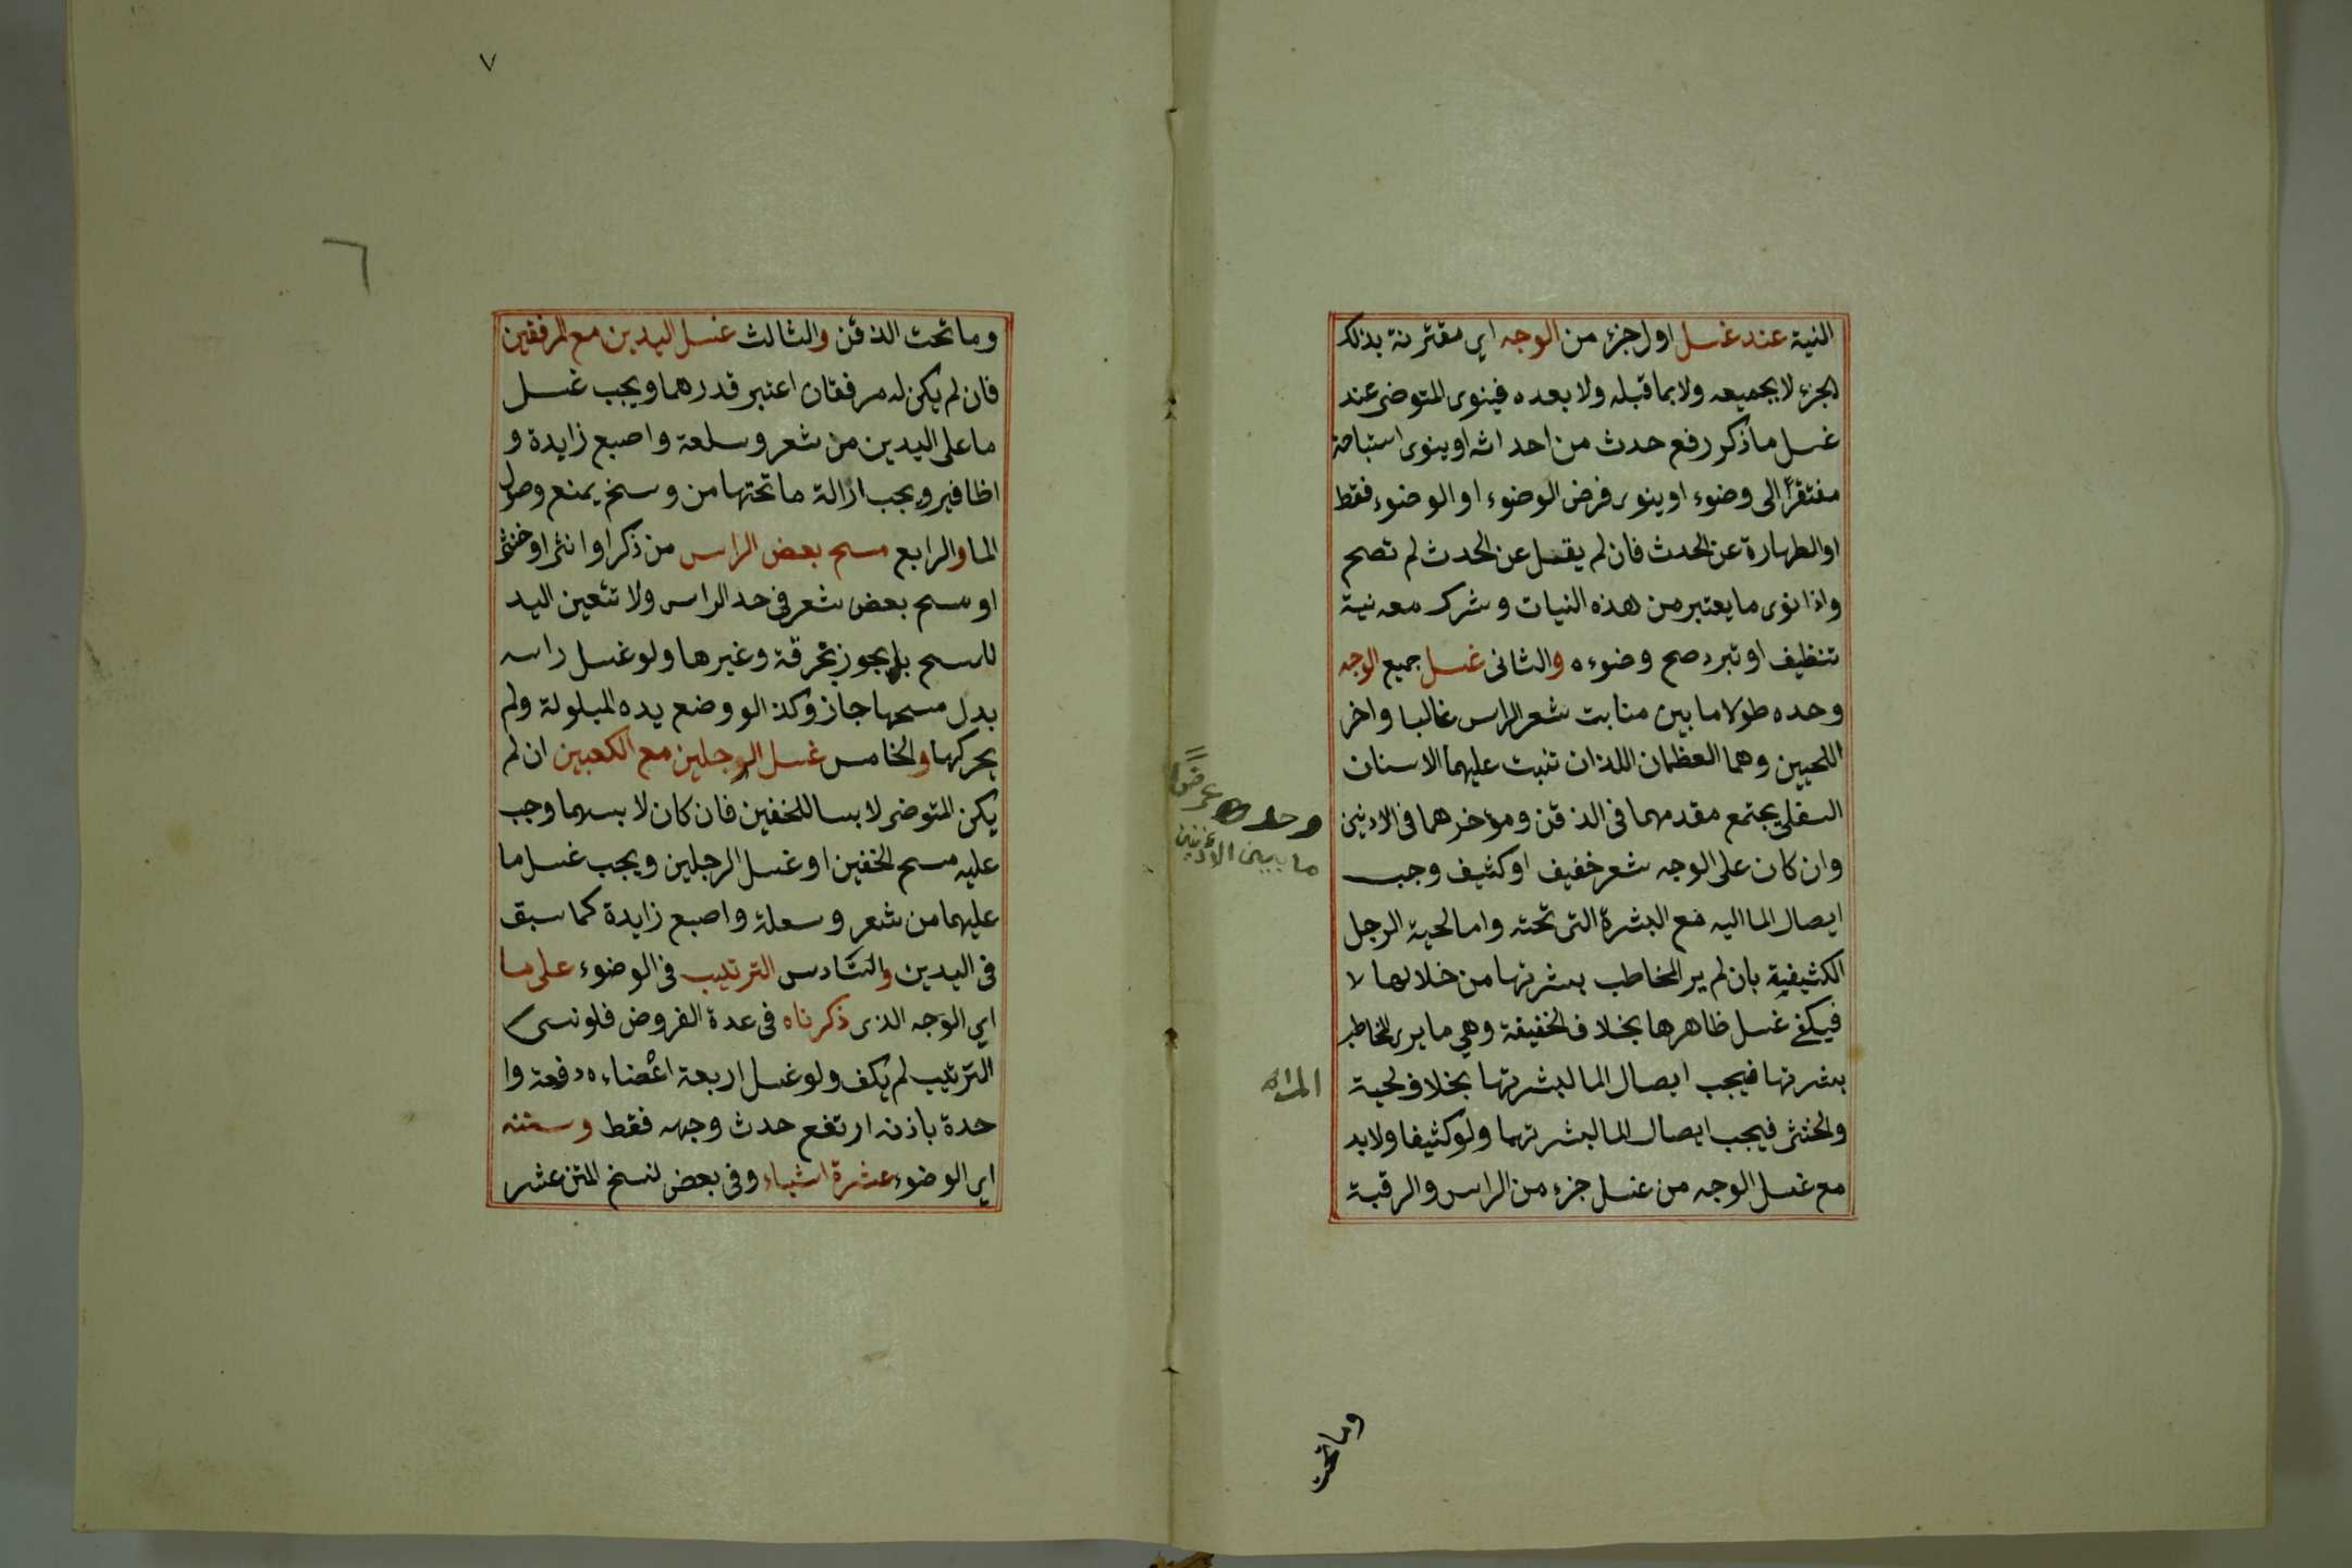 النية عند غسل اول جزء من الوجه اي مقترنة بذلك
الجزء لا بجميعه ولا بما قبله ولا بعده فينوى المتوضى عند
غسل ما ذكر رفع حدث من احداثه او ينوى استباحة
مفتقرًا الى وضوء او ينوى فرض الوضوء او الوضوء فقط
او الطهارة عن الحدث فان لم يقل عن الحدث لم تصح
واذا نوى ما يعتبر من هذه النيات وشرك معه نية
تنظيف او تبرد صح وضوءه والثانى غسل جميع الوجه
وحده طولا ما بين منابت شعر الراس غالبا واخر
اللحيين وهما العظمان اللذان تنبت عليهما الاسنان
السفلى يجتمع مقدمهما فى الذقن ومؤخرهما فى الاذنين
وحده عرضًا
ما بين الاذنين
وان كان على الوجه شعر خفيف او كثيف وجب
ايصال الما اليه مع البشرة التى تحته واما لحية الرجل
الكثيفية بان لم ير المخاطب بشرتها من خلالها لا
فيكفى غسل ظاهرها بخلاف الخفيفة وهي ما يرى المخاطب
بشرتها فيجب ايصال الما لبشرتها بخلاف لحية
المراة
والخنثى فيجب ايصال الما لبشرتهما ولو كثيفا ولا بد
مع غسل الوجه من غسل جزء من الراس والرقبة
وما تحت
٧
٦
وما تحت الذقن والثالث غسل اليدين مع المرفقين
فان لم يكن له مرفقان اعتبر قدرهما ويجب غسل
ما على اليدين من شعر وسلعة واصبع زايدة و
اظافير ويجب ازالة ما تحتها من وسخ يمنع وصول
الما والرابع مسح بعض الراس من ذكر او انثى او خنثى
او مسح بعض شعر فى حد الراس ولا تتعين اليد
للمسح بل يجوز بخرقة وغيرها ولو غسل راسه
بدل مسحها جاز وكذا لو وضع يده المبلولة ولم
يحركها والخامس غسل الرجلين مع الكعبين ان لم
يكن المتوضى لابسا للخفين فان كان لابسهما وجب
عليه مسح الخفين او غسل الرجلين ويجب غسل ما
عليهما من شعر وسعلة واصبع زايدة كما سبق
فى اليدين والسادس الترتيب فى الوضوء على ما
اي الوجه الذى ذكرناه فى عدة الفروض فلو نسى
الترتيب لم يكف ولو غسل اربعة اعضاءه دفعة وا
حدة باذنه ارتفع حدث وجهه فقط وسننه
اي الوضوء عشرة اشياء وفى بعض نسخ المتن عشر